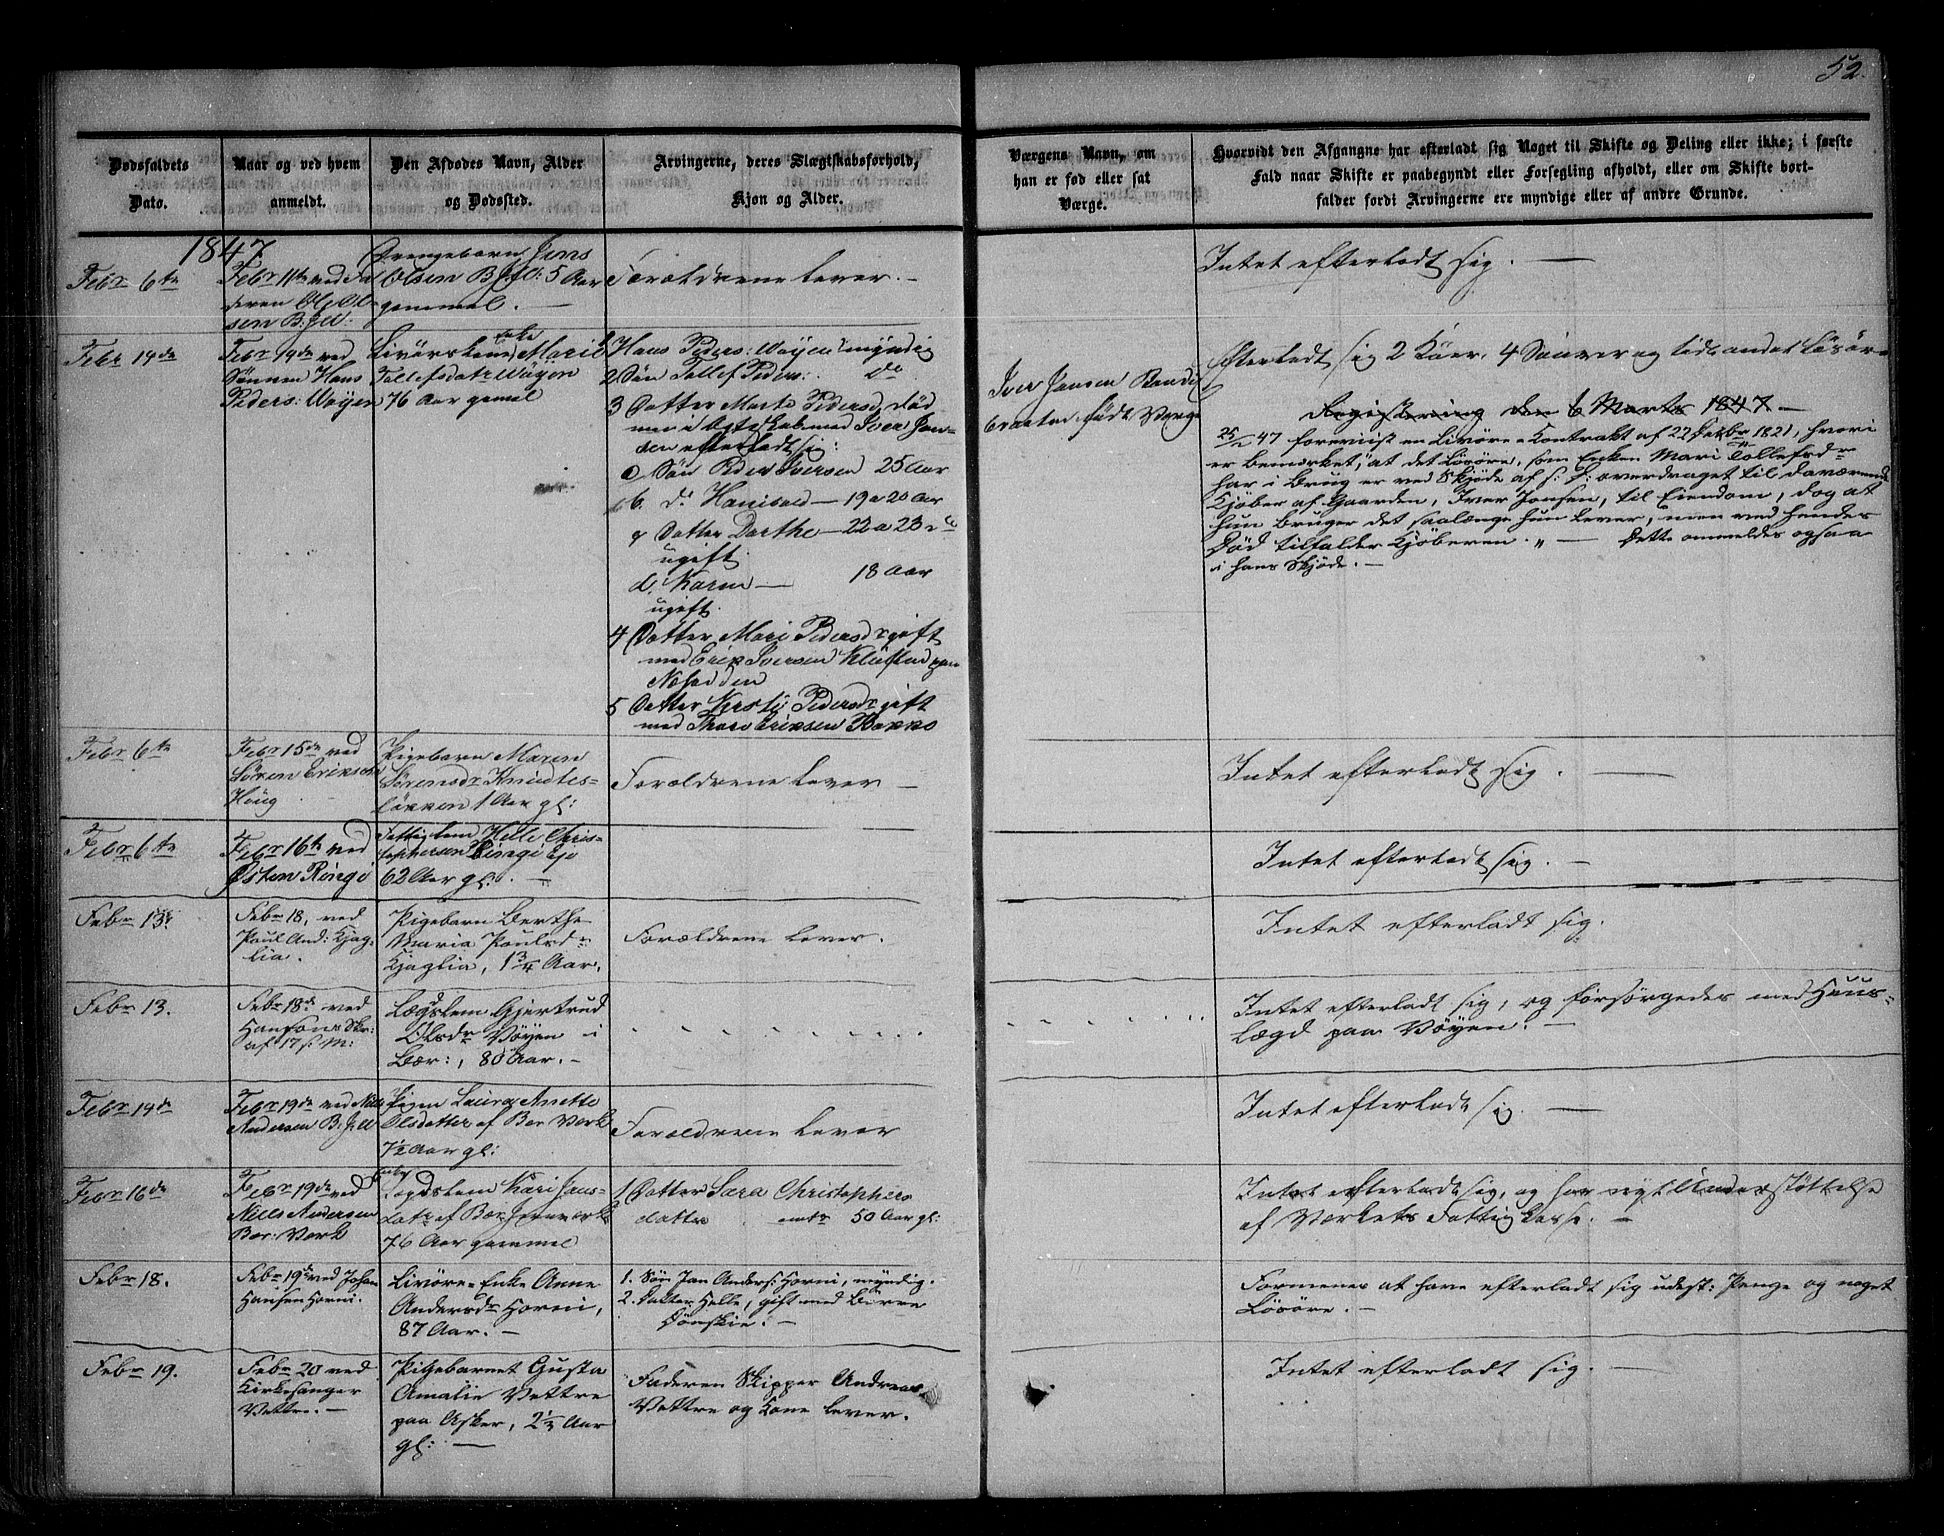 52.
Dødsfaldets
Dato.
Naar og ved hvem
anmeldt.
Den Afdødes Navn, Alder
og Dødssted.
Arvingerne, deres Slægtskabsforhold,
Kjøn og Alder.
Værgens Navn, om
han er fød eller sat
Værge.
Hvorvidt den Afgangne har efterladt sig Noget til Skifte og Deling eller ikke; i første
Fald naar Skifte er paabegyndt eller Forsegling afholdt, eller om Skifte bort-
falder fordi Arvingerne ere myndige eller af andre Grunde.
1847
Febr 6te
Febr 11te ved Fa
deren Ole Ol-
sen B. Jw.
Drengebarn Jens
Olsen B. Jw: 5 Aar
gammel. —
Forældrene lever. —
Intet efterladt sig. —
Febr 14de
Febr 19de ved
Sønnen Hans
Peders: Wøyen
Enke
Marie
Tollefsdatr Wøyen
76 Aar gamel
1 Hans Peders: Wøyen myndig
2 Søn Tollef Peders: do
3 Datter Marte Pedersd. død
men i Egteskab med Iver Jan-
sen efterladt sig:
a Søn Peder Iversen 25 Aar
b. do Hanibald — 19 a 20 Aar
c Datter Dorthe — 22 a 23 do
ugift.
d. Karen — 18 Aar
ugift.
4 Datter Mari Pedersdr gift
med Erik Iversen Klustad paa
Nesodden
5 Datter Kersti Pedersdr gift
med Thore Eriksen
Iver Jansen
født Værge
Efterladt sig 2 Køer, 4 Souer og lidt andet Løsøre
Registering den 6 Marts 1847 —
25/2 47 foreviist en Livøre-Contrakt af 22 Decbr 1821, hvori
er bemærket, "at det Løsøre, som Enken Mari Tollefsdr
har i Brug er ved Skjøde af s: D: overdraget til daværende
Kjøber af Gaarden, Iver Jonsen, til Eiendom, dog at
hun bruger det saalænge hun lever, men ved hendes
Død tilfalder Kjøberen." — Dette anmeldes ogsaa
i hans Skjøde. —
Febr 6te
Febr 15de ved
Søren Eriksen
Houg
Pigebarn Maren
Sørensdr Knudts-
løkken 1 Aar gl:
Forældrene lever —
Intet efterladt sig. —
Febr 6te
Febr 16te ved
Østen Ringi
Fattiglem Helle Chris-
tophersen Ringi Eje
62 Aar gl: —
Intet efterladt sig. —
Febr 13.
Febr 18. ved
Poul And: Kjag-
lia.
Pigebarn Berthe
Maria Poulsdr
Kjaglia, 1¾ Aar.
Forældrene lever.
Intet efterladt sig.
Febr 13.
Febr 18de ved
Hansons Skr:
af 17 s: M:
Lægdslem Gjertrud
Olsdr Vøyen i
Bær:, 80 Aar. —
Intet efterladt sig, og forsørgedes med Huus-
lægd paa Vøyen. —
Febr 14de
Febr 19de ved Niels
Andersen B. Jw
Pigen Laura Anette
Olsdatter af Bær Værk
7½ Aar gl:
Forældrene lever
Intet efterladt sig. —
Febr 16de
Febr 19de ved
Niels Andersen
Bær: Værk
Enke
Lægdslem Kari Jans-
datr af Bær Jernværk
76 Aar gammel
1 Datter Sara Christophers
datter omtr 50 Aar gl:
Intet efterladt sig, og har nydt Understøttelse
af Værkets Fattigkasse. —
Febr 18.
Febr 19de ved Johan
Hansen Horni.
Livøre-Enke Anne
Andersdr Horni,
87 Aar. —
1. Søn Jan Anders: Horni, myndig.
2. Datter Helle, gift med Børre
Dønskie. —
Formenes at have efterladt sig udest: Penge og noget
Løsøre. —
Febr 19.
Febr 20 ved
Kirkesanger
Vettre. —
Pigebarnet Gusta
Amalie Vettre
paa Asker, 2½ Aar
gl: —
Faderen Skipper Andreas
Vettre og Kone lever.
Intet efterladt sig. —